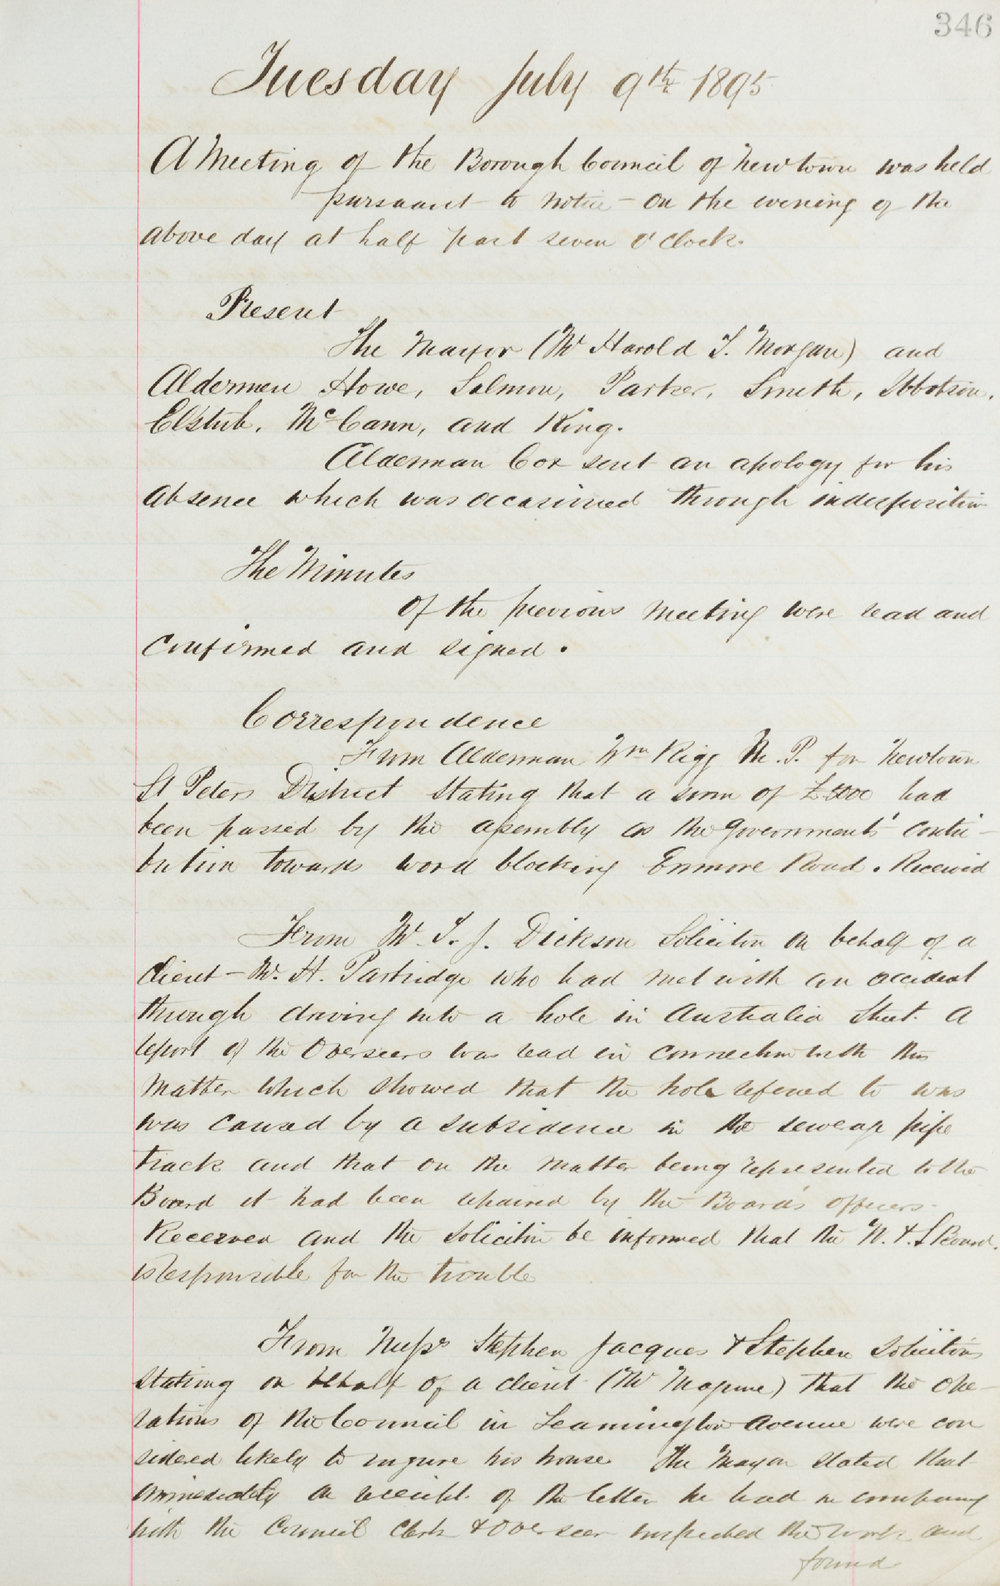 346
Tuesday July 9th 1895
A Meeting of the Borough Council of Newtown was held
pursuant to notice - on the evening of the
above day at half past seven o'clock.
Present
The Mayor (Mr Harold T. Morgan) and
Aldermen Howe, Salmon, Parker, Smith, Ibbotson,
Elstub, McCann, and King.
Alderman Cox sent an apology for his
absence which was occasioned through indisposition
The Minutes
of the previous meeting were read and
confirmed and signed.
Correspondence
From Alderman Wm Rigg M.P. for Newtown
St Peters District stating that a sum of had
been passed by the assembly as the Governments' contri-
bution towards wood blocking Enmore Road. Received
From Mr T. J. Dickson Solicitor on behalf of a
client - Mr. H. Partridge who had met with an accident
through driving into a hole in Australia Street. A
report of the Overseers was read in connection with this
matter which showed that the hole refered to was
was caused by a subsidence in the sewerage pipe
track and that on the matter being represented to the
Board it had been repaired by the Board's officers.
Received and the Solicitor be informed that the W. & S Board.
is responsible for the trouble
From Messrs Stephen Jacques & Stephen Solicitors
stating on behalf of a client (Mr ) that the ope-
rations of the Council in Leamington Avenue were con
sidered likely to injure his house The Mayor stated that
immediately on receipt of the letter he had in company
with the Council Clerk & Overseer inspected the work and
found